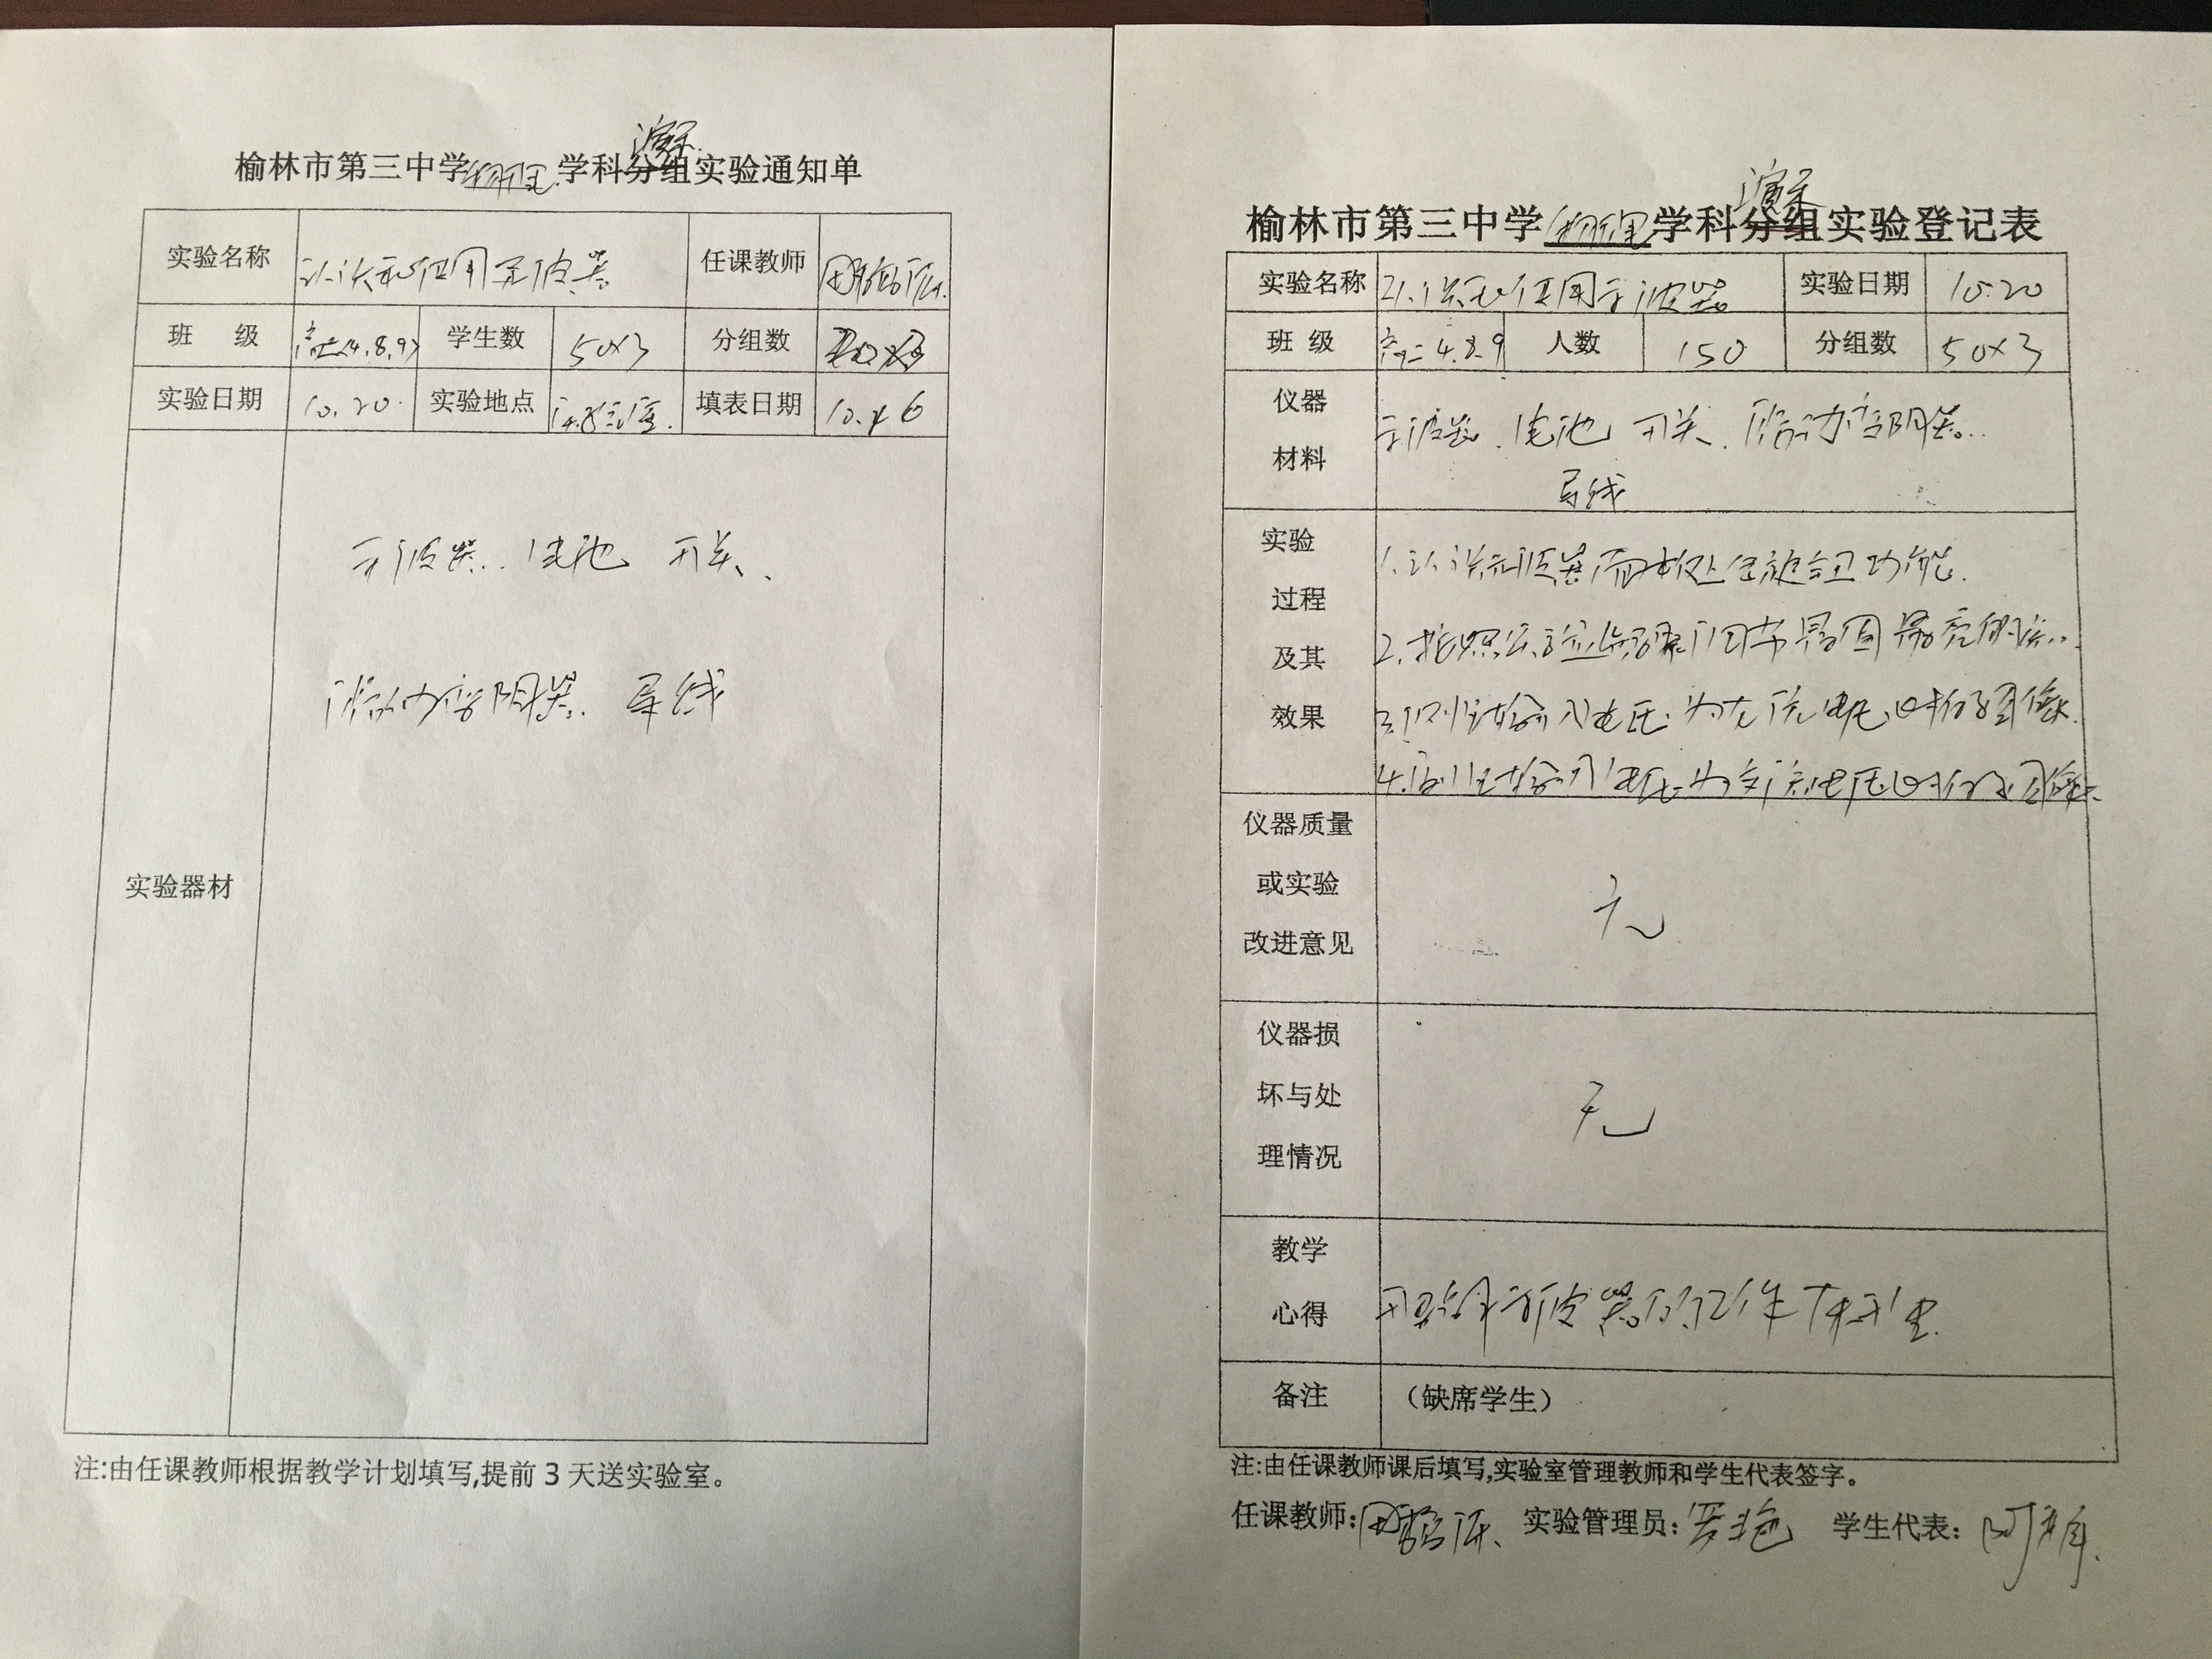 演示
榆林市第三中学物理学科分组实验通知单
实验名称 认识和使用示波器 任课教师
班 级 高二(4.8.9) 学生数 50×3 分组数
实验日期 10.20. 实验地点 填表日期
实验器材
示波器. 电池 开关、
滑动变阻器. 导线
注:由任课教师根据教学计划填写,提前 3 天送实验室。
演示
榆林市第三中学物理学科分组实验登记表
实验名称 认识和使用示波器 实验日期 10.20
班 级 高二4.8.9 人数 150 分组数 50×3
仪器
材料
示波器. 电池 开关. 滑动变阻器..
导线
实验
过程
及其
效果
1.认识示波器面板处
2.按照实验步骤调节
3.观测输入电压为直流电压时的图像.
4.输入电压为交流电压时的图像.
仪器质量
或实验
改进意见
无
仪器损
坏与处
理情况
无
教学
心得
示波器的工作
备注 （缺席学生）
注:由任课教师课后填写,实验室管理教师和学生代表签字。
任课教师: 实验管理员: 学生代表: